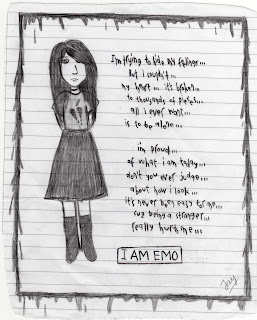 I'm trying to hide my feelings...
But i couldn't...
my heart... it's broken...
to thousands of pieces...
all i ever want...
is to be alone...
i'm proud...
of what i am today...
don't you ever judge...
about how i look...
it's never been easy for me...
cuz being a stranger...
really hurts me...
I AM EMO